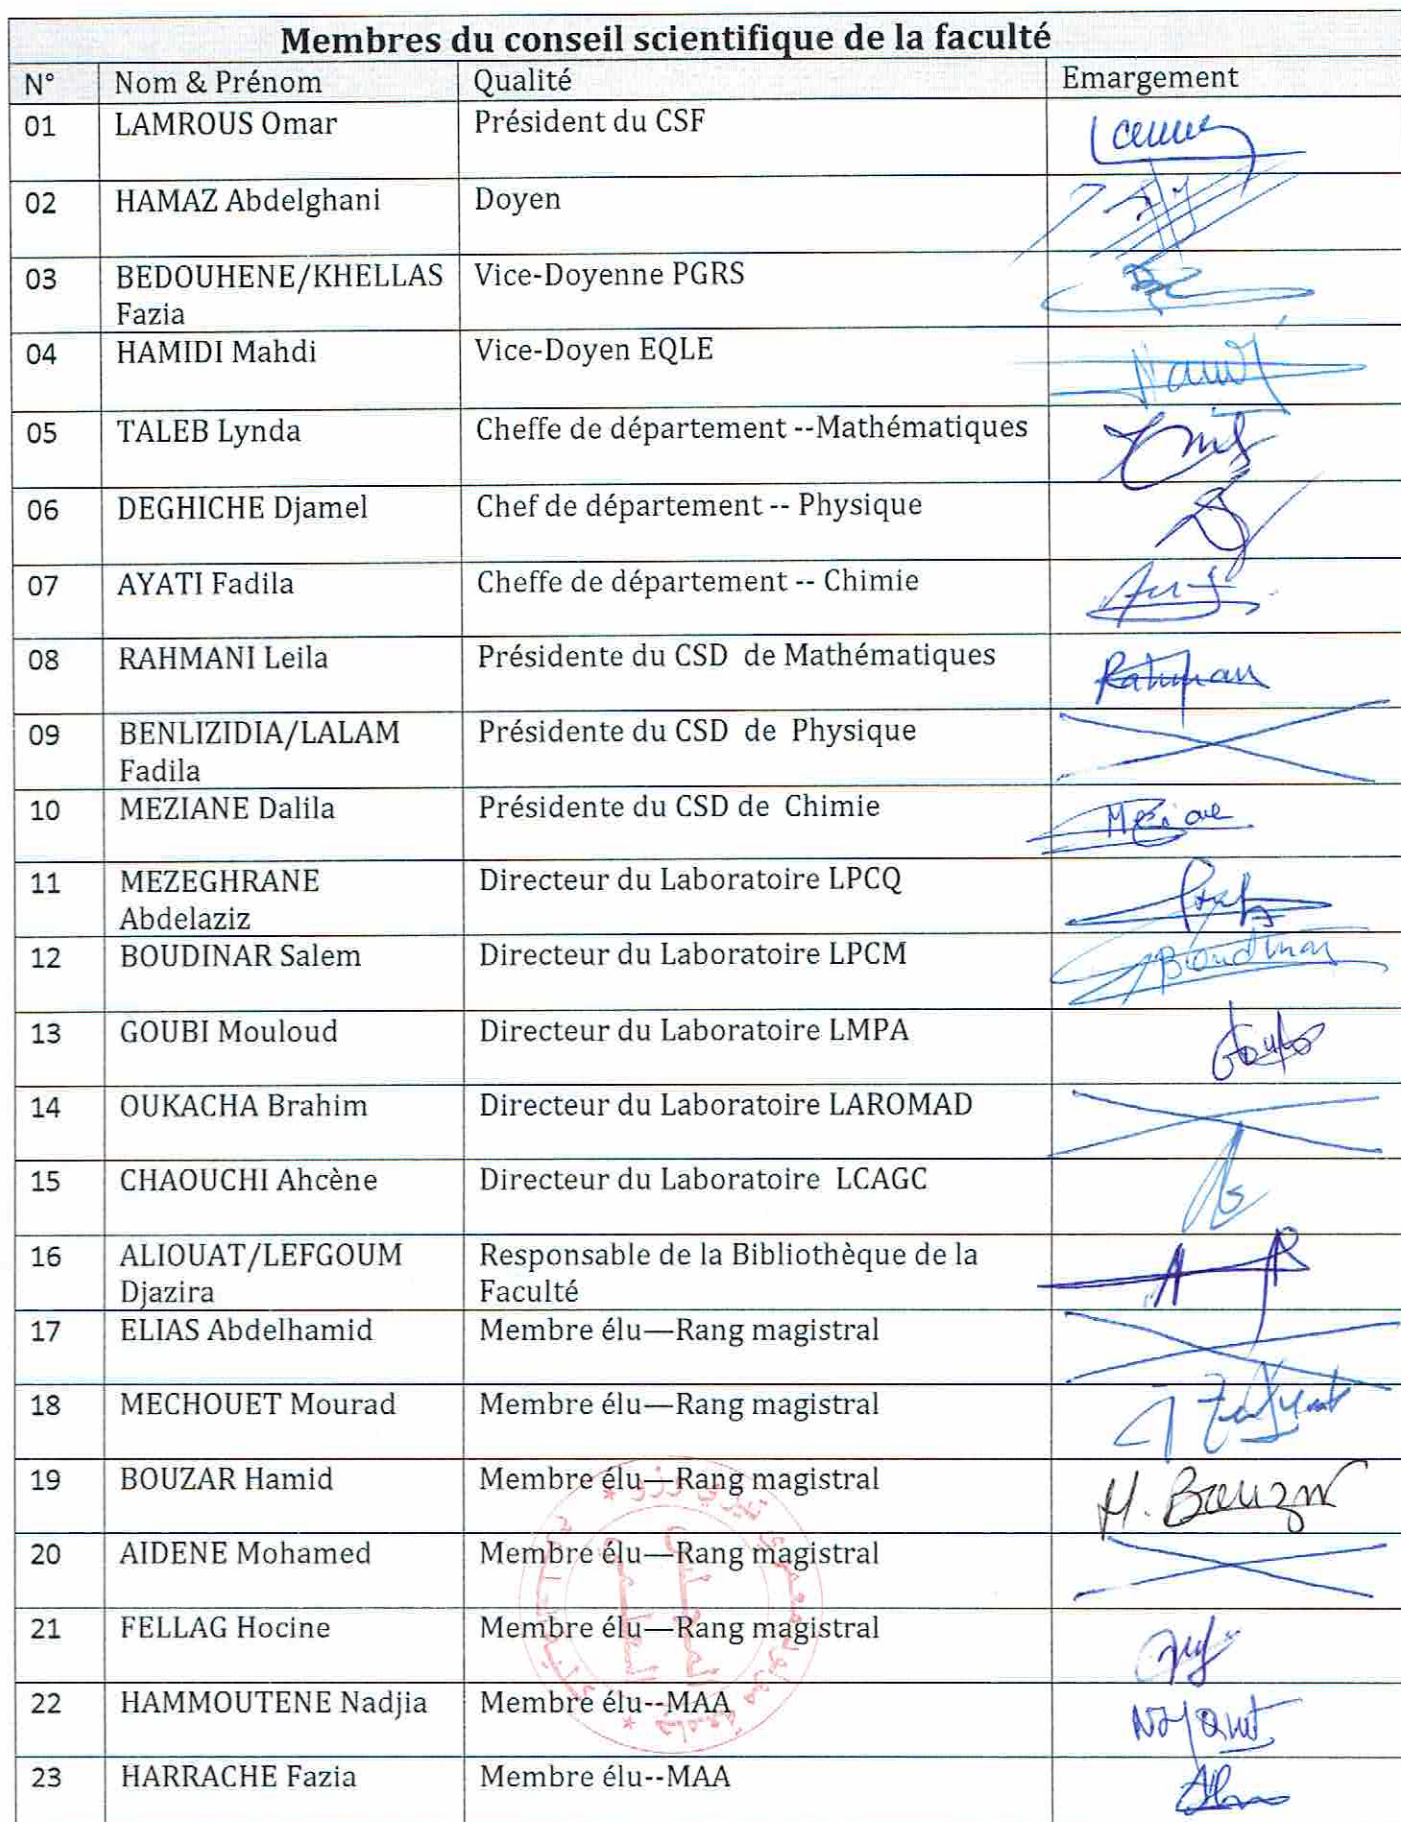 Membres du conseil scientifique de la faculté
N° Nom & Prénom Qualité Emargement
01 LAMROUS Omar Président du CSF
02 HAMAZ Abdelghani Doyen
03 BEDOUHENE/KHELLAS Vice-Doyenne PGRS
Fazia
04 HAMIDI Mahdi Vice-Doyen EQLE
05 TALEB Lynda Cheffe de département --Mathématiques
06 DEGHICHE Djamel Chef de département -- Physique
07 AYATI Fadila Cheffe de département -- Chimie
08 RAHMANI Leila Présidente du CSD de Mathématiques
09 BENLIZIDIA/LALAM Présidente du CSD de Physique
Fadila
10 MEZIANE Dalila Présidente du CSD de Chimie
11 MEZEGHRANE Directeur du Laboratoire LPCQ
Abdelaziz
12 BOUDINAR Salem Directeur du Laboratoire LPCM Boudinar
13 GOUBI Mouloud Directeur du Laboratoire LMPA
14 OUKACHA Brahim Directeur du Laboratoire LAROMAD
15 CHAOUCHI Ahcène Directeur du Laboratoire LCAGC
16 ALIOUAT/LEFGOUM Responsable de la Bibliothèque de la
Djazira Faculté
17 ELIAS Abdelhamid Membre élu—Rang magistral
18 MECHOUET Mourad Membre élu—Rang magistral
19 BOUZAR Hamid Membre élu—Rang magistral H. Bouzar
20 AIDENE Mohamed Membre élu—Rang magistral
21 FELLAG Hocine Membre élu—Rang magistral
22 HAMMOUTENE Nadjia Membre élu--MAA
23 HARRACHE Fazia Membre élu--MAA